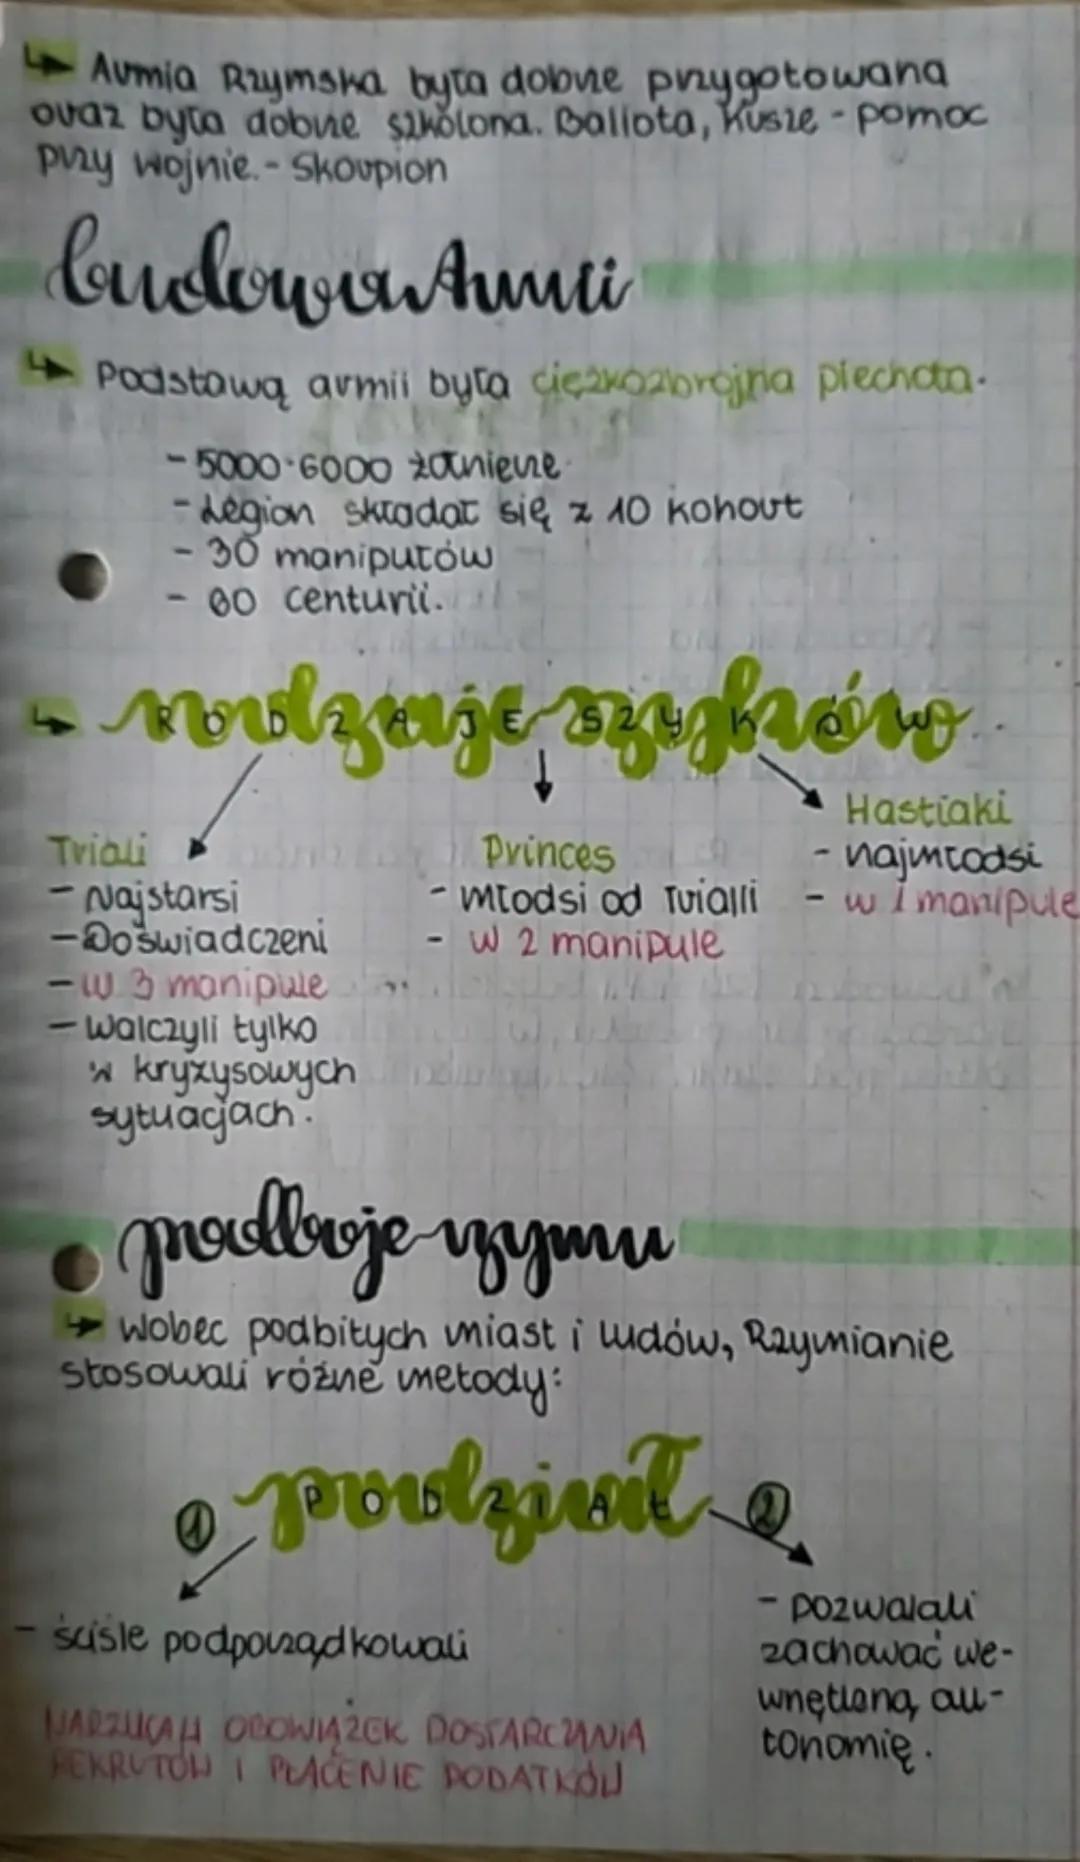 ↳ Armia Rzymska była dobrze przygotowana
oraz była dobrze szkolona. Baliota, Kusze - pomoc
przy wojnie. - Skorpion
budowa Armii
↳ Podstawą armii była ciężkozbrojna piechota.
- 5000-6000 żołnierze
- Legion składał się z 10 kohort
- 30 manipułów
- 60 centurii.
↳ RODZAJE SZYKÓW
Triali
- Najstarsi
- Doświadczeni
- w 3 manipule
- walczyli tylko
w kryzysowych
sytuacjach.
Princes
- młodsi od Trialli
- w 2 manipule
Hastiaki
- najmłodsi
- w 1 manipule
podboje rzymu
↳ Wobec podbitych miast i ludów, Rzymianie
stosowali różne metody:
① PODZIAŁ ②
- ściśle podporządkowali
NARZUCALI OBOWIĄZEK DOSTARCZANIA
REKRUTÓW I PŁACENIE PODATKÓW
- pozwalali
zachować we-
wnętrzną au-
tonomię.